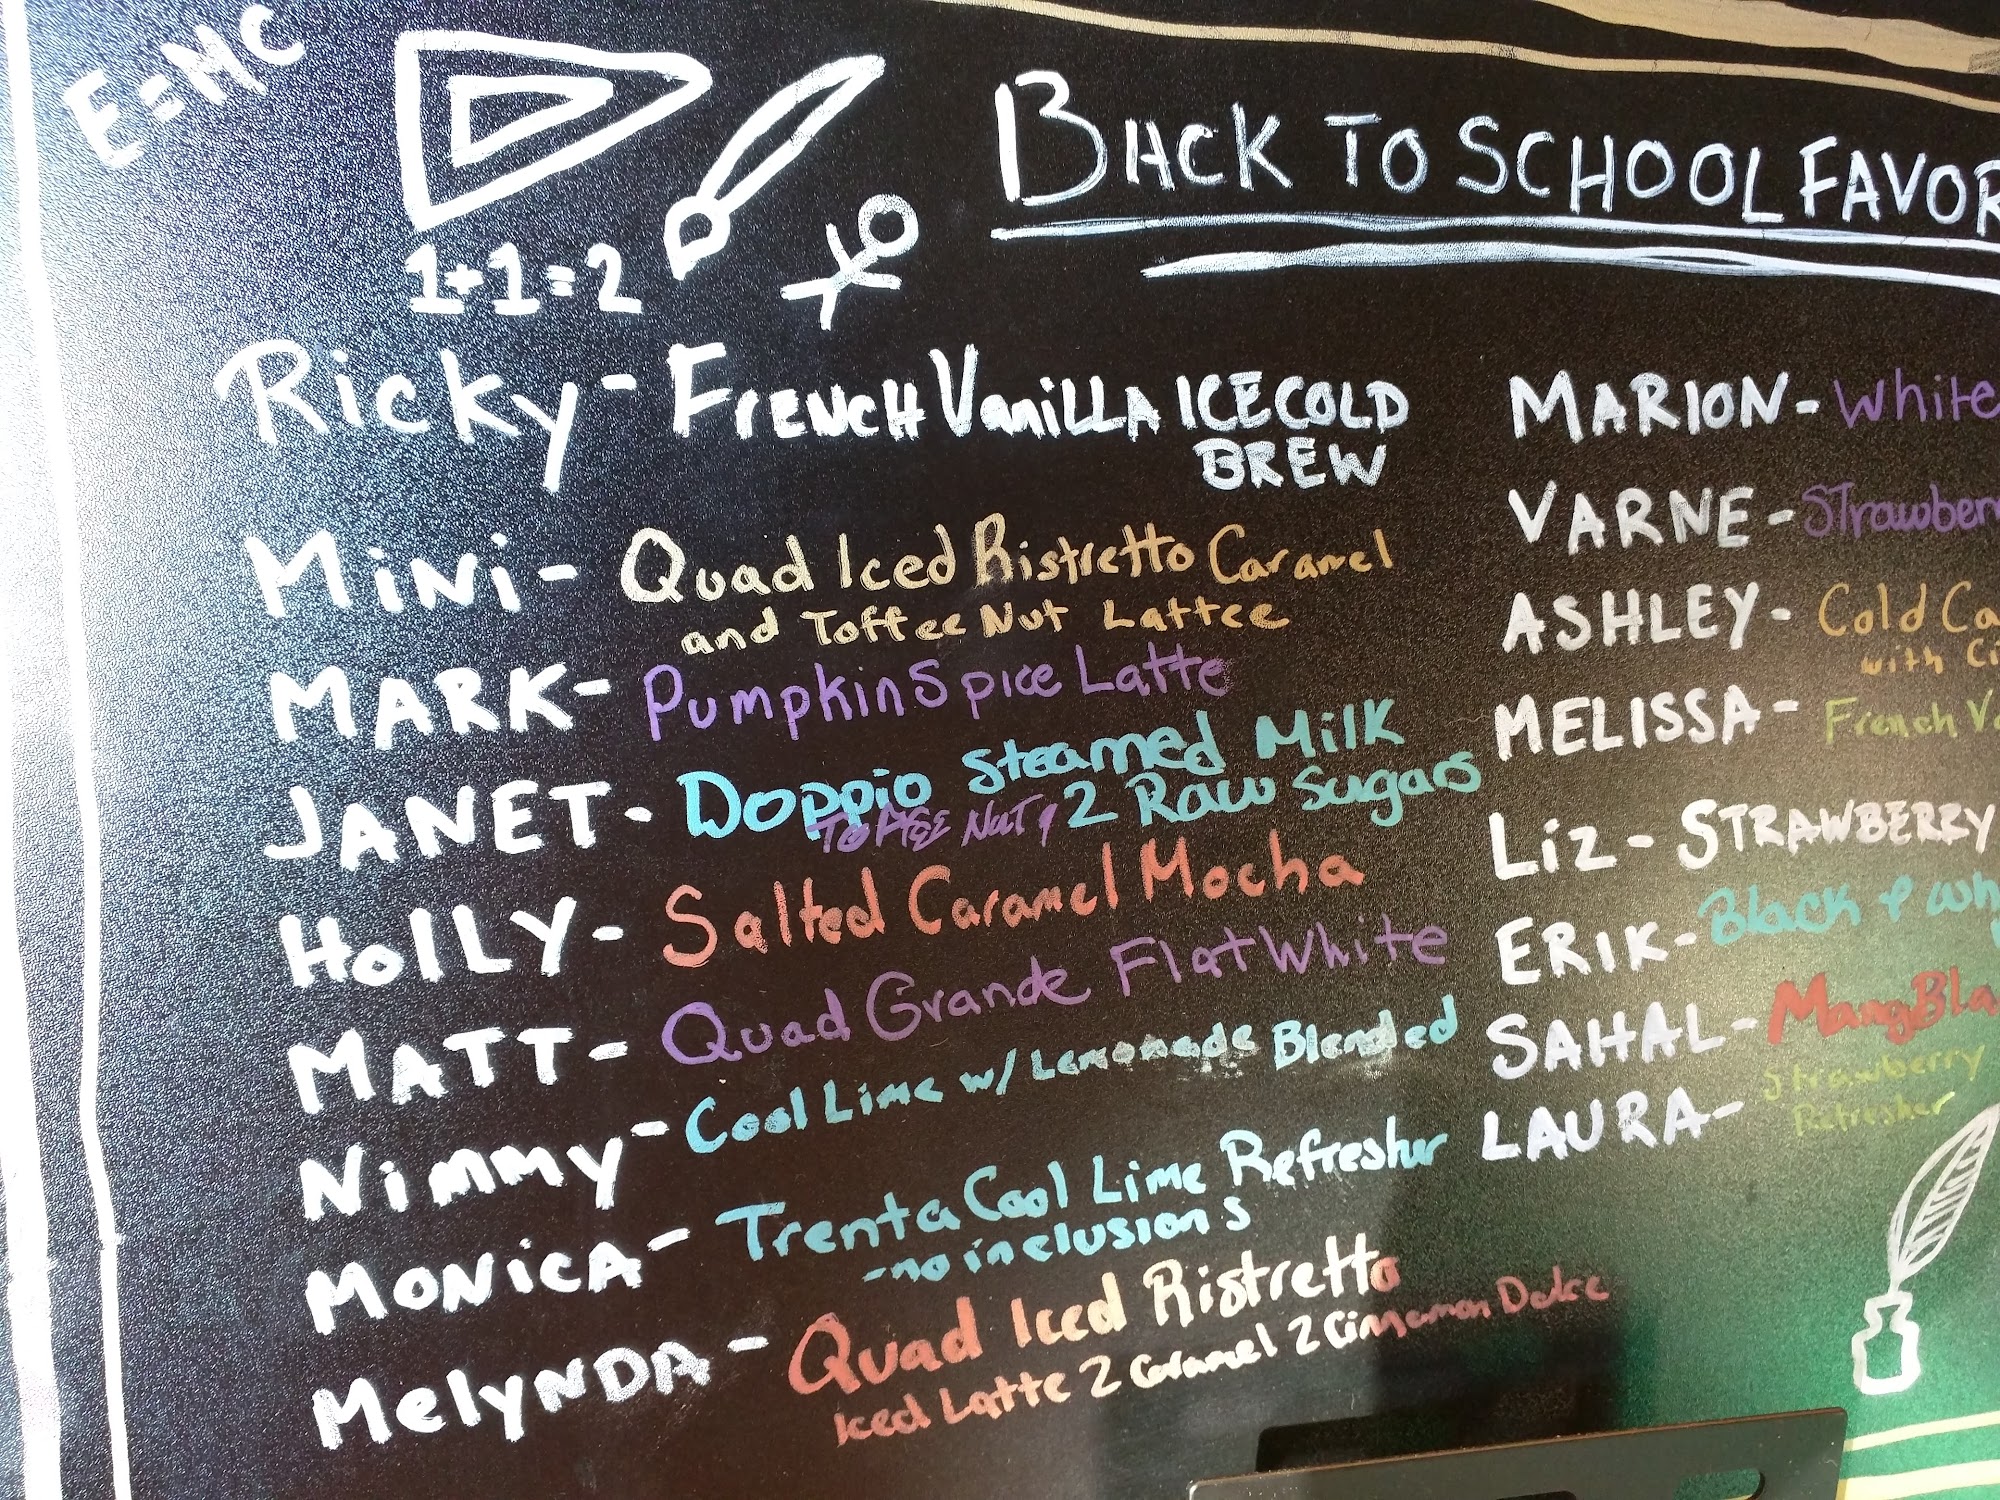 E=MC
1+1=2
BACK TO SCHOOL FAVOR
Ricky - FRENCH VANILLA ICE COLD
BREW
MiNi - Quad Iced Ristretto Caramel
and Toffee Nut Lattee
MARK - Pumpkin Spice Latte
JANET - Doppio Steamed Milk
Toffee Nut, 2 Raw Sugars
HOLLY - Salted Caramel Mocha
MATT - Quad Grande Flat White
Nimmy - Cool Lime w/ Lemonade Blended
MONiCA - Trenta Cool Lime Refresher
- no inclusions
MelyNDA - Quad Iced Ristretto
Iced Latte 2 Caramel 2 Cinnamon Dolce
MARION - White
VARNE - Strawber
ASHLEY - Cold Ca
with Ci
MELISSA - French Va
Liz - STRAWBERRY
ERIK - Black & Wh
SAHAL - MangBla
LAURA - Strawberry
Refresher